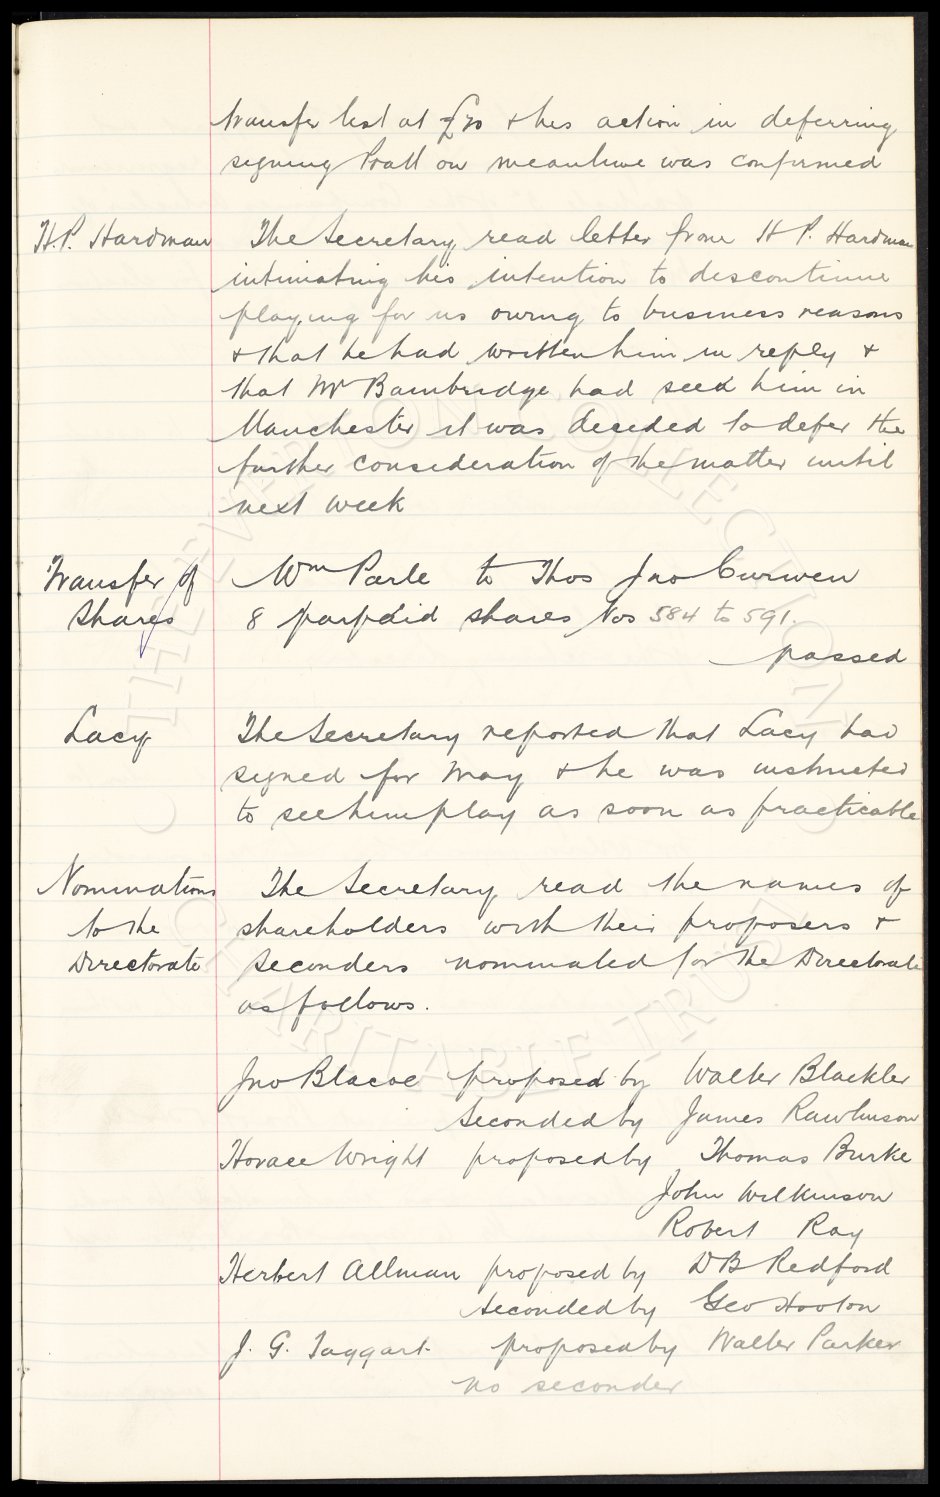 transfer list at £70 & his action in deferring
signing Pratt on meantime was confirmed
H.P. Hardman The Secretary read letter from H P. Hardman
intimating his intention to discontinue
playing for us owing to business reasons
& that he had written him in reply &
that Mr Bainbridge had seed him in
Manchester it was decided to defer the
further consideration of the matter until
next week
Transfer of Wm Parle to Thos Jno Curwen
Shares 8 partpaid shares Nos 584 to 591.
passed
Lacy The Secretary reported that Lacy had
signed for May & he was instructed
to see him play as soon as practicable
Nominations The Secretary read the names of
to the shareholders with their proposers &
Directorate Seconders nominated for the Directorate
as follows.
Jno Blacoe proposed by Walter Blackler
Seconded by James Rawlinson
Horace Wright proposed by Thomas Burke
John Wilkinson
Robert Ray
Herbert Allman proposed by D B Redford
seconded by Geo Hooton
J. G. Taggart. proposed by Walter Parker
no seconder
THE EVERTON COLLECTION
CHARITABLE TRUST